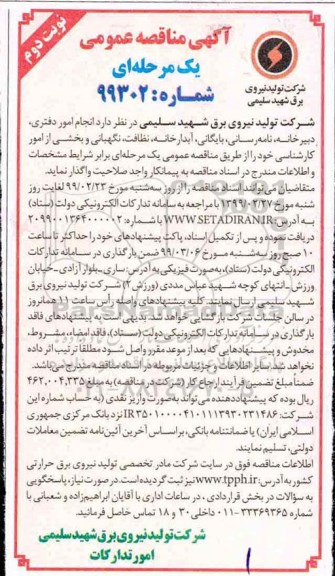 نوبت دوم
آگهی مناقصه عمومی
یک مرحله‌ای
شماره: ۹۹۳۰۲
شرکت تولید نیروی
برق شهید سلیمی
شرکت تولید نیروی برق شهید سلیمی در نظر دارد انجام امور دفتری،
دبیرخانه، نامه رسانی، بایگانی، آبدارخانه، نظافت، نگهبانی و بخشی از امور
کارشناسی خود را از طریق مناقصه عمومی یک مرحله‌ای برابر شرایط مشخصات
و اطلاعات مندرج در اسناد مناقصه به پیمانکار واجد صلاحیت واگذار نماید.
متقاضیان می‌توانند اسناد مناقصه را از روز سه‌شنبه مورخ ۹۹/۰۲/۲۳ لغایت روز
شنبه مورخ ۱۳۹۹/۰۲/۲۷ با مراجعه به سامانه تدارکات الکترونیکی دولت (ستاد)
به آدرس WWW.SETADIRAN.IR با شماره: ۲۰۹۹۰۰۱۳۶۴۰۰۰۰۰۲
دریافت نموده و پس از تکمیل اسناد، پاکت پیشنهادهای خود را حداکثر تا ساعت
۱۰ صبح روز سه‌شنبه مورخ ۹۹/۰۳/۰۶ ضمن بارگذاری در سامانه تدارکات
الکترونیکی دولت (ستاد)، به‌صورت فیزیکی به آدرس: ساری-بلوار آزادی-خیابان
ورزش-انتهای کوچه شهید عباس مددی (ورزش ۳) شرکت تولید نیروی برق
شهید سلیمی ارسال نمایند. کلیه پیشنهادهای واصله راس ساعت ۱۱ همانروز
در سالن جلسات شرکت بازگشایی خواهد شد. بدیهی است، به پیشنهادهای فاقد
بارگذاری در سامانه تدارکات الکترونیکی دولت (ستاد)، فاقد امضاء، مشروط،
مخدوش و پیشنهادهایی که بعد از موعد مقرر واصل شود مطلقا ترتیب اثر داده
نخواهد شد. سایر اطلاعات و جزئیات مربوطه در اسناد مناقصه مندرج می‌باشد.
ضمناً مبلغ تضمین فرآیند ارجاع کار (شرکت در مناقصه) به مبلغ ۴۶۲,۰۰۴,۳۳۵
ریال بوده که پیشنهاددهنده می‌تواند به‌صورت واریز نقدی (به حساب شماره این
شرکت: IR۳۵۰۱۰۰۰۰۴۱۰۱۱۱۳۹۳۰۲۳۱۴۸۶ نزد بانک مرکزی جمهوری
اسلامی ایران) یا ضمانتنامه بانکی، بر اساس آخرین آئین‌نامه تضمین معاملات
دولتی، تسلیم نمایند.
اطلاعات مناقصه فوق در سایت شرکت مادر تخصصی تولید نیروی برق حرارتی
کشور به آدرس: www.tpph.ir نیز ثبت گردیده است. در صورت نیاز، پاسخگویی
به سؤالات در بخش قراردادی، در ساعات اداری با آقایان ابراهیم‌زاده و شعبانی با
شماره ۳۳۳۶۹۳۶۵-۰۱۱ داخلی ۳۰ و ۱۸ تماس حاصل فرمائید.
شرکت تولید نیروی برق شهید سلیمی
امور تدارکات